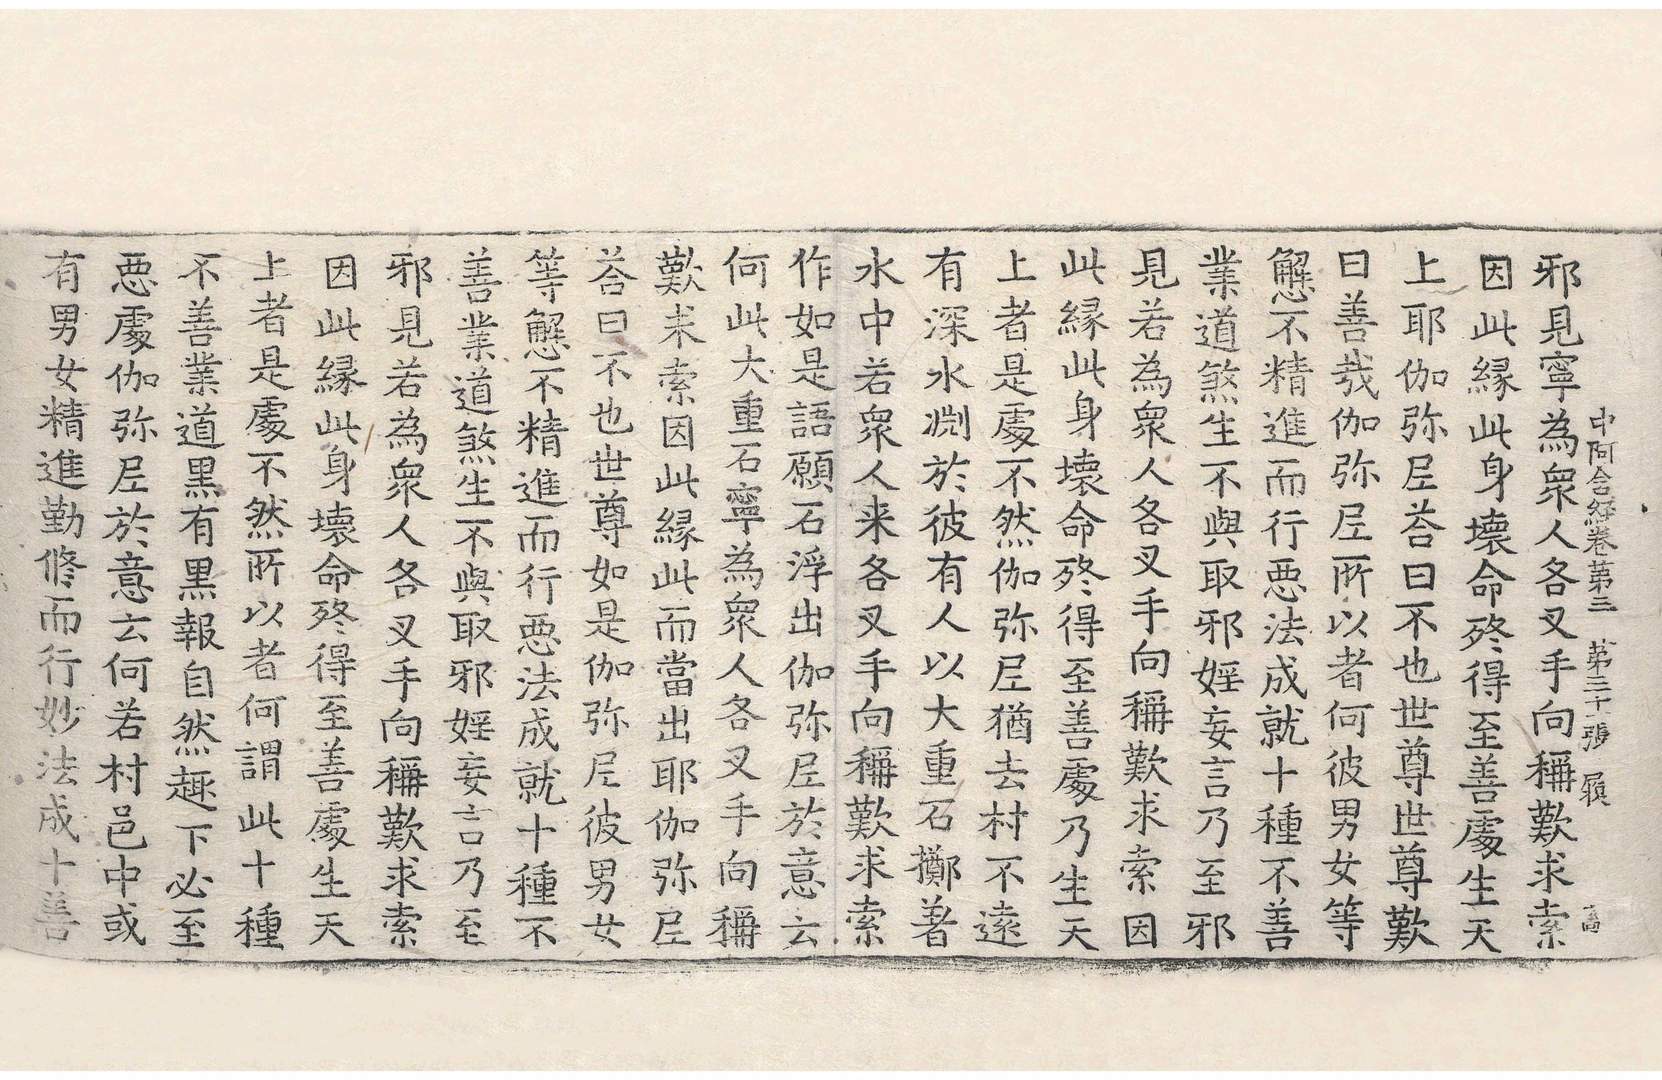 中阿含經卷第三 第二十張 履
邪見寧為衆人各叉手向稱歎求索
因此緣此身壞命終得至善處生天
上耶伽弥尼荅曰不也世尊世尊歎
曰善㢤伽弥尼所以者何彼男女等
懈不精進而行惡法成就十種不善
業道煞生不與取邪婬妄言乃至邪
見若為衆人各叉手向稱歎求索因
此緣此身壞命終得至善處乃生天
上者是處不然伽弥尼猶去村不遠
有深水渕於彼有人以大重石擲著
水中若衆人来各叉手向稱歎求索
作如是語願石浮出伽弥尼於意云
何此大重石寧為衆人各叉手向稱
歎求索因此緣此而當出耶伽弥尼
荅曰不也世尊如是伽弥尼彼男女
等懈不精進而行惡法成就十種不
善業道煞生不與取邪婬妄言乃至
邪見若為衆人各叉手向稱歎求索
因此緣此身壞命終得至善處生天
上者是處不然所以者何謂此十種
不善業道黑有黑報自然趣下必至
惡處伽弥尼於意云何若村邑中或
有男女精進勤修而行妙法成十善